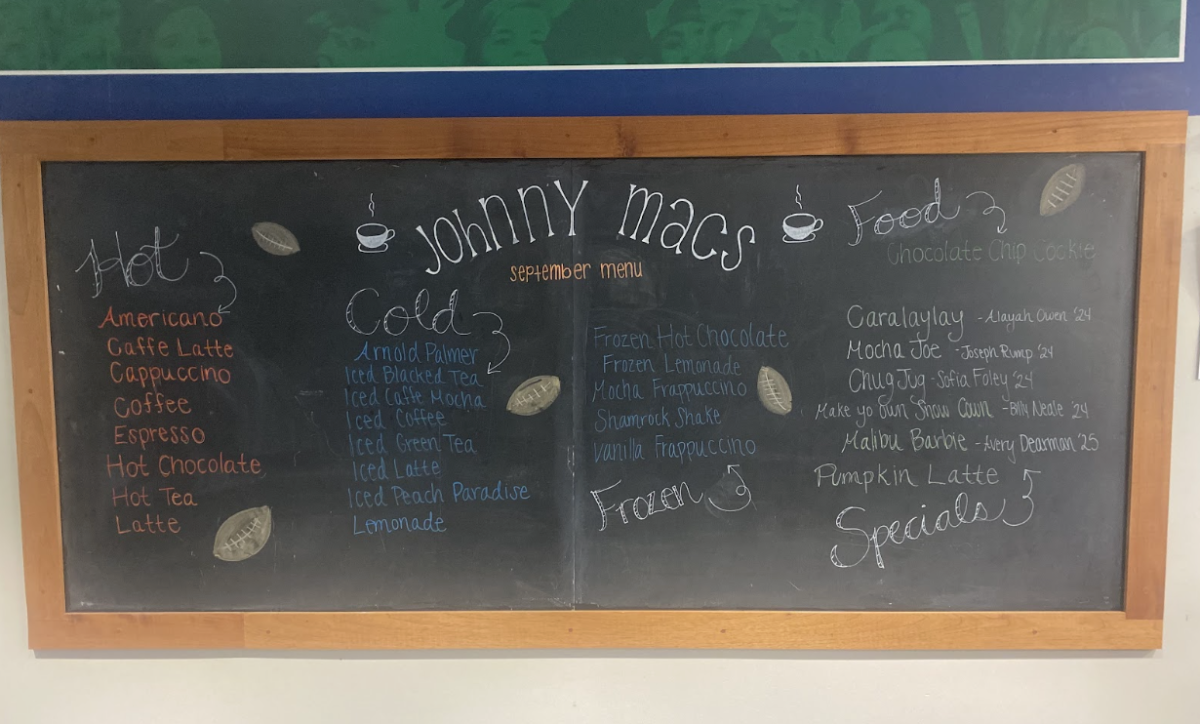 Johnny Macs
september menu
Hot
Americano
Caffe Latte
Cappuccino
Coffee
Espresso
Hot Chocolate
Hot Tea
Latte
Cold
Arnold Palmer
Iced Blacked Tea
Iced Caffe Mocha
Iced Coffee
Iced Green Tea
Iced Latte
Iced Peach Paradise
Lemonade
Frozen Hot Chocolate
Frozen Lemonade
Mocha Frappuccino
Shamrock Shake
Vanilla Frappuccino
Frozen
Food
Chocolate Chip Cookie
Caralaylay - Alayah Owen '24
Mocha Joe - Joseph Rump '24
Chug Jug - Sofia Foley '24
Make yo own Snow Cown - Billy Neale '24
Malibu Barbie - Avery Dearmon '25
Pumpkin Latte
Specials